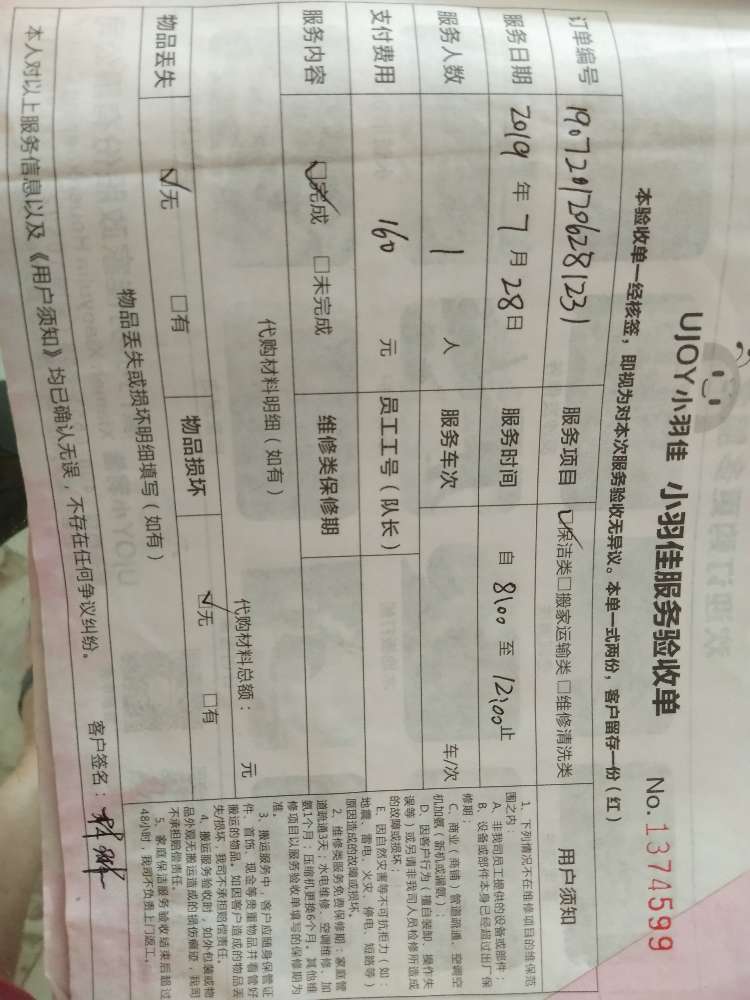 UJOY小羽佳 小羽佳服务验收单 No.1374599
本验收单一经核签，即视为对本次服务验收无异议。本单一式两份，客户留存一份（红）
订单编号 1907201206281231 服务项目 保洁类□搬家运输类□维修清洗类 用户须知
服务日期 2019年7月28日 服务时间 自 8:00 至 12:00 止
服务人数 1 人 服务车次 车/次
支付费用 160 元 员工工号（队长）
服务内容 ☑完成 □未完成 维修类保修期
代购材料明细（如有）
代购材料总额： 元
物品丢失 ☑无 □有 物品损坏 ☑无 □有
物品丢失或损坏明细填写（如有）
本人对以上服务信息以及《用户须知》均已确认无误，不存在任何争议纠纷。 客户签名：
1、下列情况不在维修项目的维保范
围之内：
A、非我司员工提供的设备或部件；
B、设备或部件本身已经超过出厂保
修期；
C、商业（商铺）管道疏通、空调空
机加氨（新机或漏氨）；
D、因客户行为（擅自装卸、操作失
误等）或另请非我司人员检修所造成
的故障或损坏；
E、因自然灾害等不可抗拒力（如：
地震、雷电、火灾、停电、短路等）
原因造成的故障或损坏。
2、维修类服务免费保修期：家庭管
道疏通3天；水电维修、空调维修、加
氨1个月；压缩机更换6个月。其他维
修项目以服务验收单填写的保修期为
准。
3、搬运服务中，客户应随身保管证
件、首饰、现金等贵重物品并看管好
搬运的物品。如因客户造成的物品丢
失/损坏，我司不承担赔偿责任。
4、搬运服务验收时，如外包装或物
品外观无搬运造成的损伤痕迹，我司
不承担赔偿责任。
5、家庭保洁服务验收结束后超过
48小时，我司不负责上门返工。